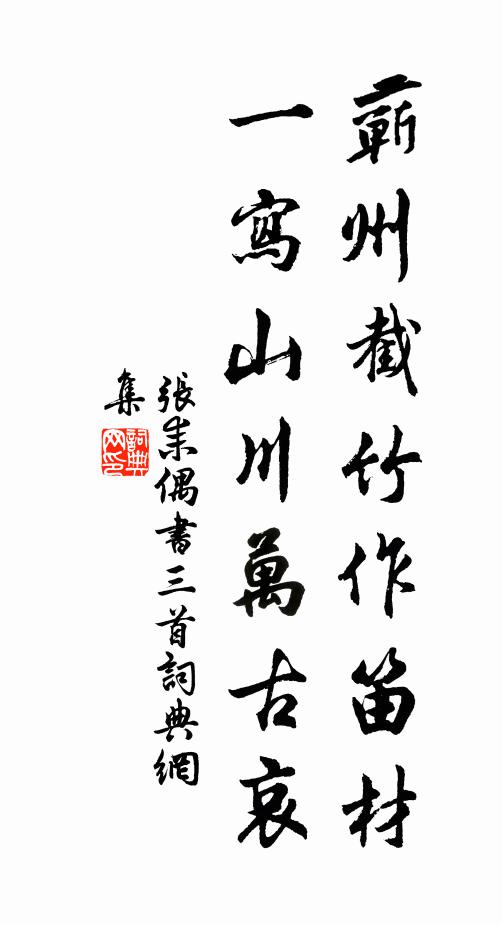 蘄州截竹作笛材
一寫山川萬古哀
張耒偶書三首詞典網
集
詞典网印